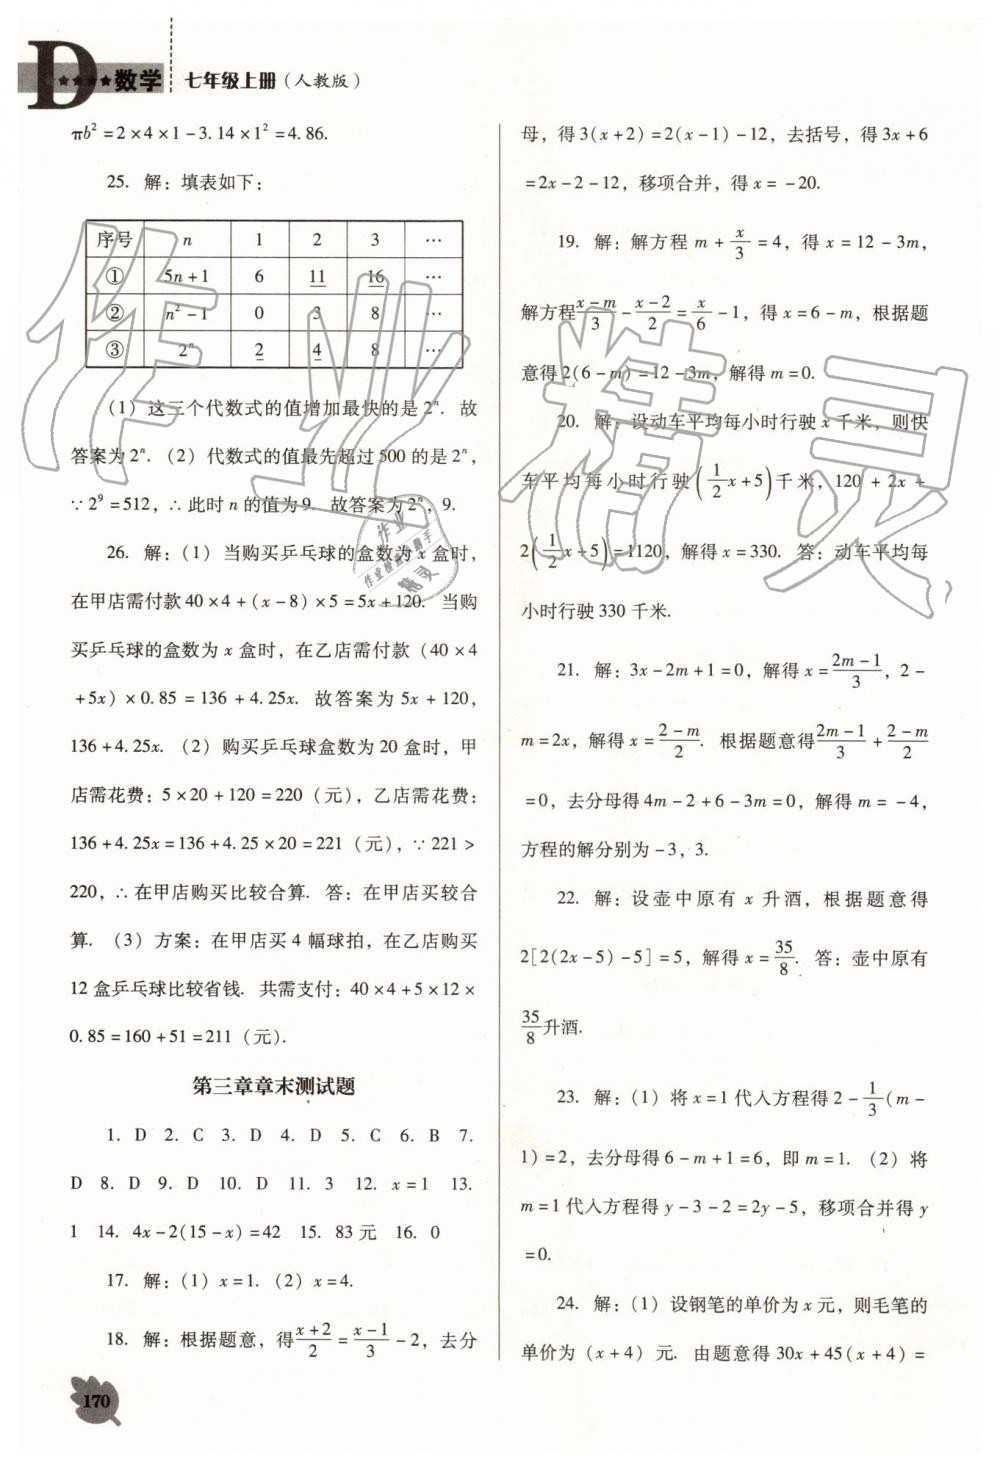 D 数学 七年级上册（人教版）
πb²=2×4×1-3.14×1²=4.86.
25. 解：填表如下：
序号 n 1 2 3 …
① 5n+1 6 11 16 …
② n²-1 0 3 8 …
③ 2ⁿ 2 4 8 …
(1) 这三个代数式的值增加最快的是 2ⁿ. 故
答案为 2ⁿ. (2) 代数式的值最先超过 500 的是 2ⁿ，
∵2⁹=512，∴此时 n 的值为 9. 故答案为 2ⁿ，9.
26. 解：(1) 当购买乒乓球的盒数为 x 盒时，
在甲店需付款 40×4+(x-8)×5=5x+120. 当购
买乒乓球的盒数为 x 盒时，在乙店需付款 (40×4
+5x)×0.85=136+4.25x. 故答案为 5x+120，
136+4.25x. (2) 购买乒乓球盒数为 20 盒时，甲
店需花费：5×20+120=220（元），乙店需花费：
136+4.25x=136+4.25×20=221（元），∵221>
220，∴在甲店购买比较合算. 答：在甲店买较合
算. (3) 方案：在甲店买 4 幅球拍，在乙店购买
12 盒乒乓球比较省钱. 共需支付：40×4+5×12×
0.85=160+51=211（元）.
第三章章末测试题
1. D 2. C 3. D 4. D 5. C 6. B 7.
D 8. D 9. D 10. D 11. 3 12. x=1 13.
1 14. 4x-2(15-x)=42 15. 83 元 16. 0
17. 解：(1) x=1. (2) x=4.
18. 解：根据题意，得(x+2)/2=(x-1)/3-2，去分
母，得 3(x+2)=2(x-1)-12，去括号，得 3x+6
=2x-2-12，移项合并，得 x=-20.
19. 解：解方程 m+x/3=4，得 x=12-3m，
解方程(x-m)/3-(x-2)/2=x/6-1，得 x=6-m，根据题
意得 2(6-m)=12-3m，解得 m=0.
20. 解：设动车平均每小时行驶 x 千米，则快
车平均每小时行驶(1/2x+5)千米，120+2x+
2(1/2x+5)=1120，解得 x=330. 答：动车平均每
小时行驶 330 千米.
21. 解：3x-2m+1=0，解得 x=(2m-1)/3，2-
m=2x，解得 x=(2-m)/2. 根据题意得(2m-1)/3+(2-m)/2
=0，去分母得 4m-2+6-3m=0，解得 m=-4，
方程的解分别为 -3，3.
22. 解：设壶中原有 x 升酒，根据题意得
2[2(2x-5)-5]=5，解得 x=35/8. 答：壶中原有
35/8升酒.
23. 解：(1) 将 x=1 代入方程得 2-1/3(m-
1)=2，去分母得 6-m+1=6，即 m=1. (2) 将
m=1 代入方程得 y-3-2=2y-5，移项合并得 y
=0.
24. 解：(1) 设钢笔的单价为 x 元，则毛笔的
单价为 (x+4) 元. 由题意得 30x+45(x+4)=
170
作业精灵
作业
作业检查小助手
精灵